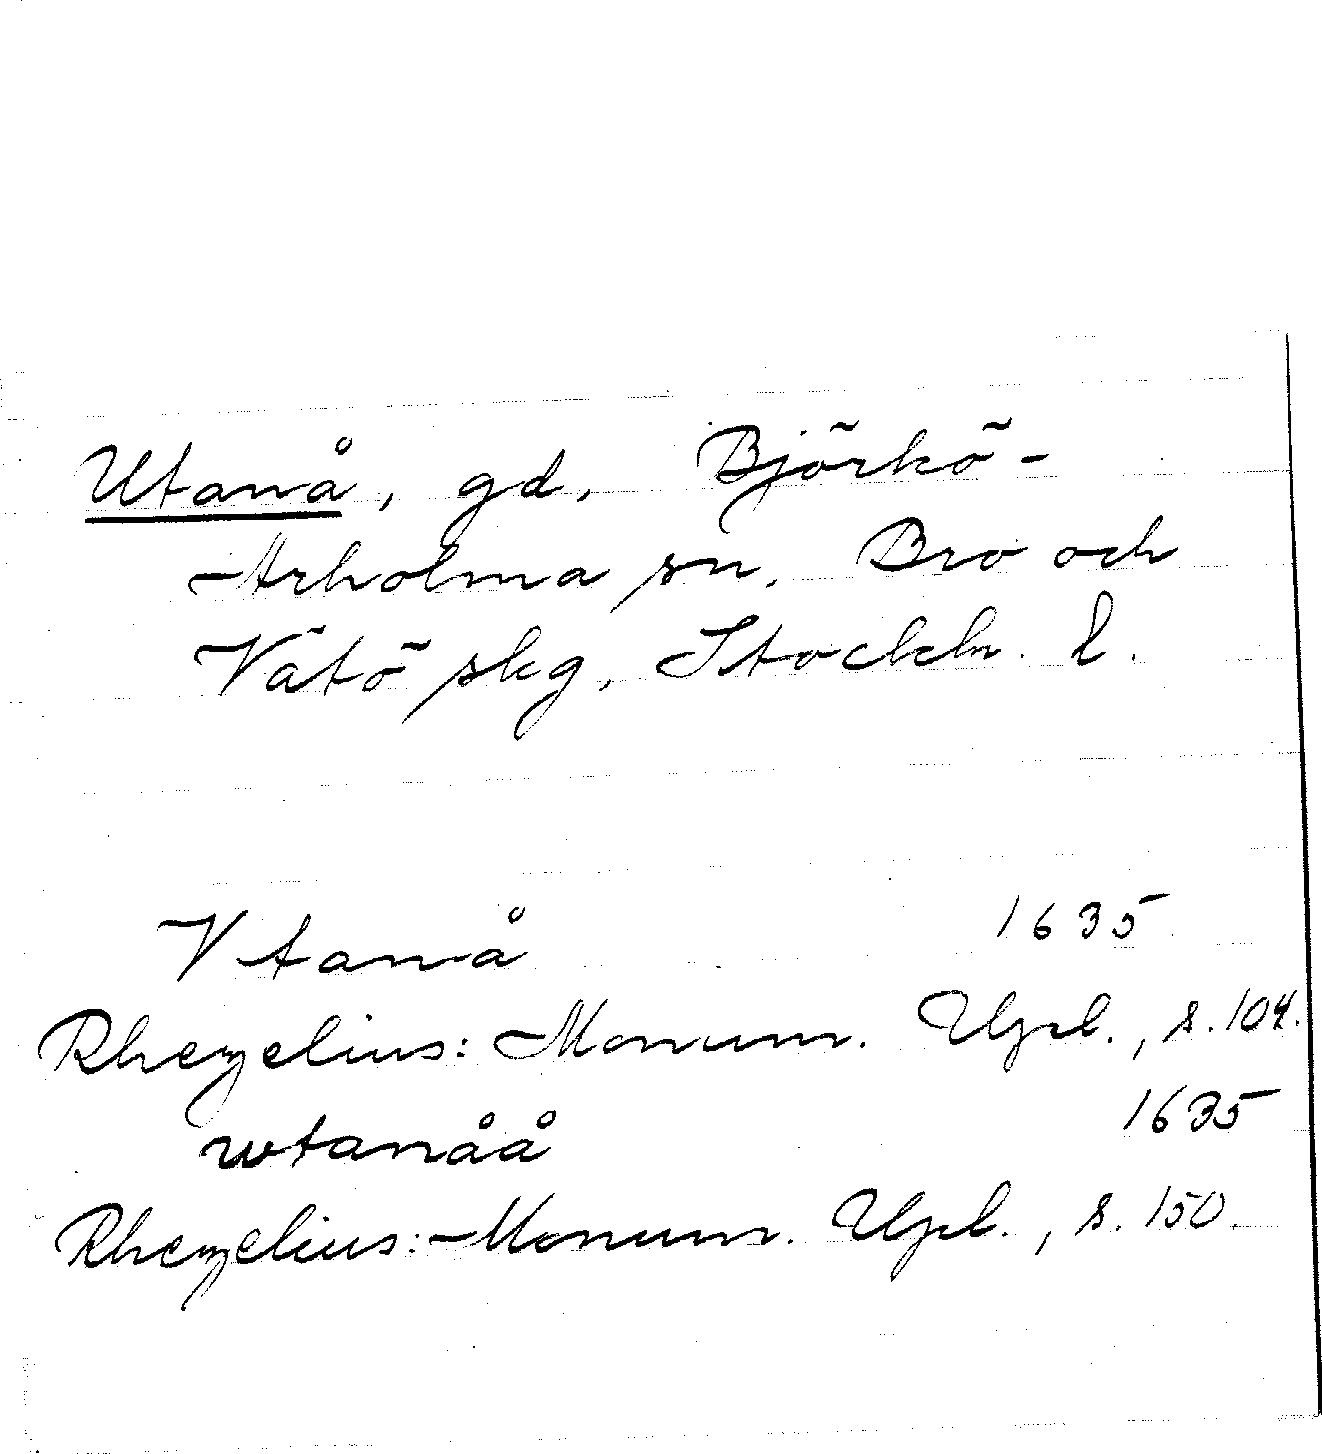 Utanå, gd, Björkö-
Arholma sn. Bro och
Vätö skg, Stockh. l.
Vtanå 1635
Rhezelius: Monum. Upl., s. 104.
wtanåå 1635
Rhezelius: Monum. Upl., s. 150.